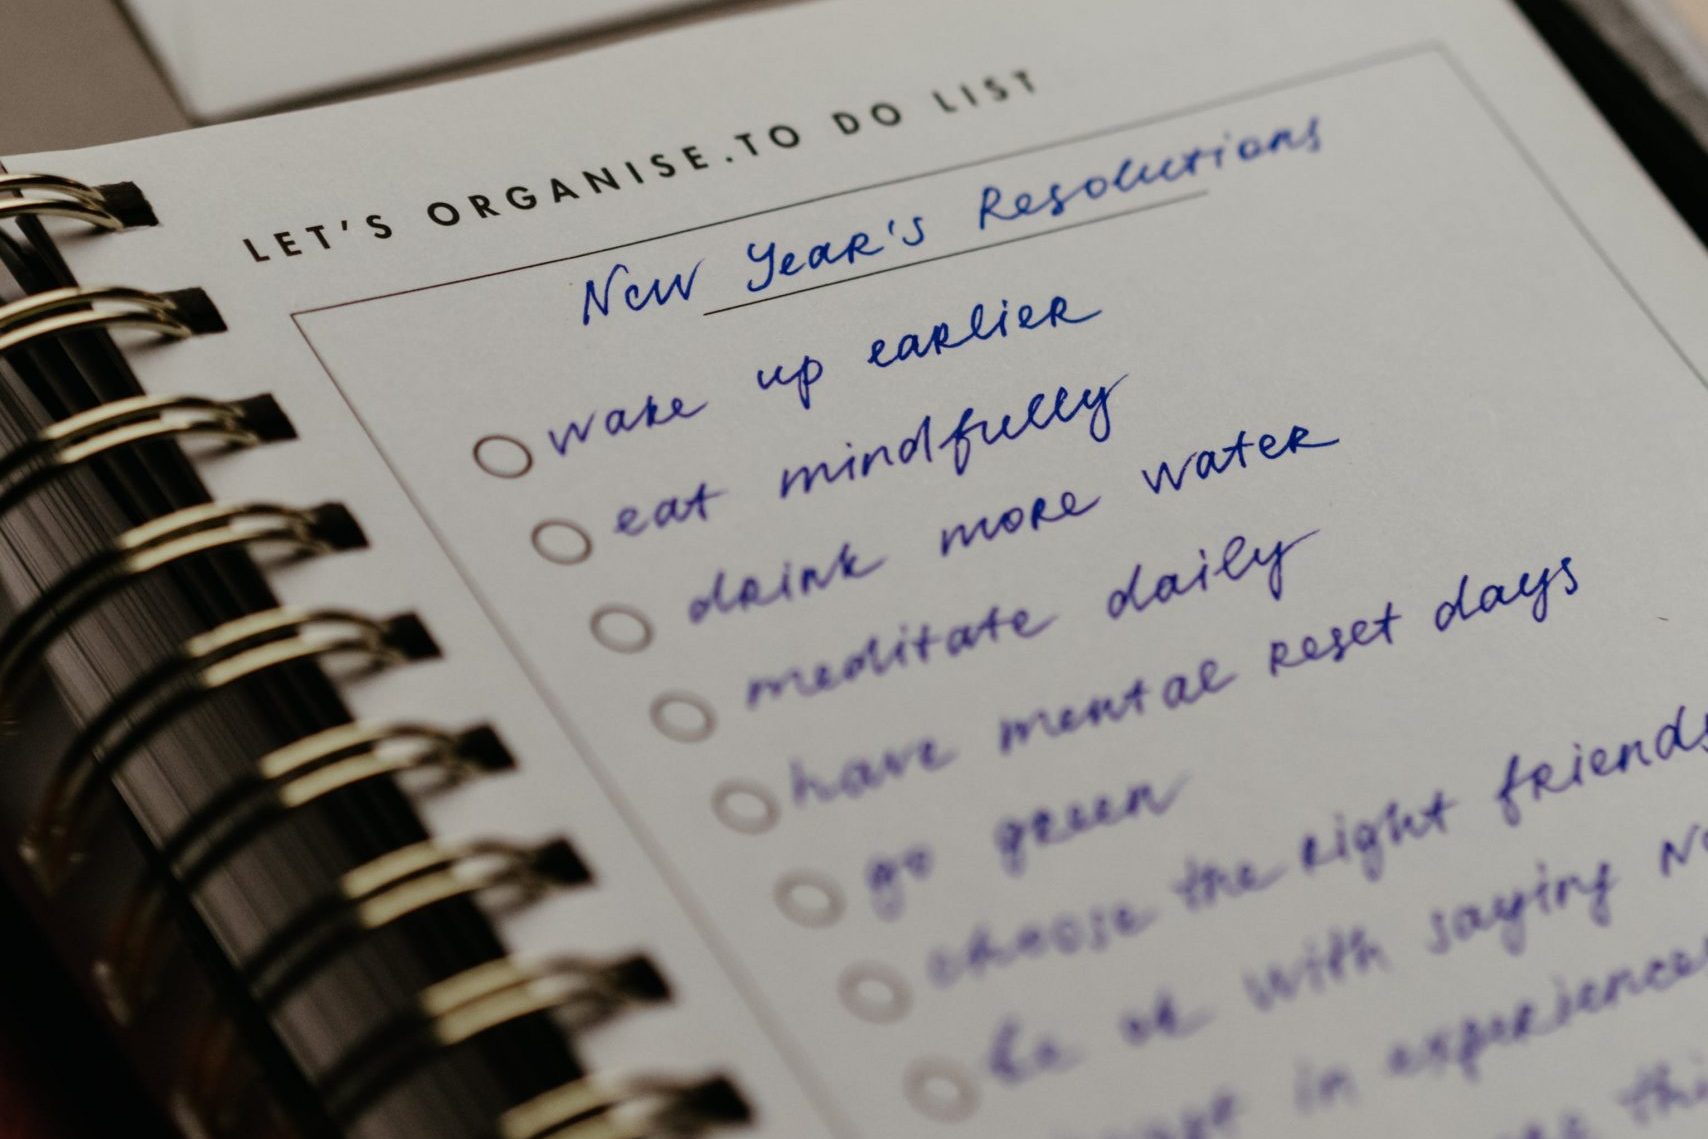 LET'S ORGANISE.TO DO LIST
New Year's Resolutions
wake up earlier
eat mindfully
drink more water
meditate daily
have mental reset days
go green
choose the right friends
be ok with saying
in experiences